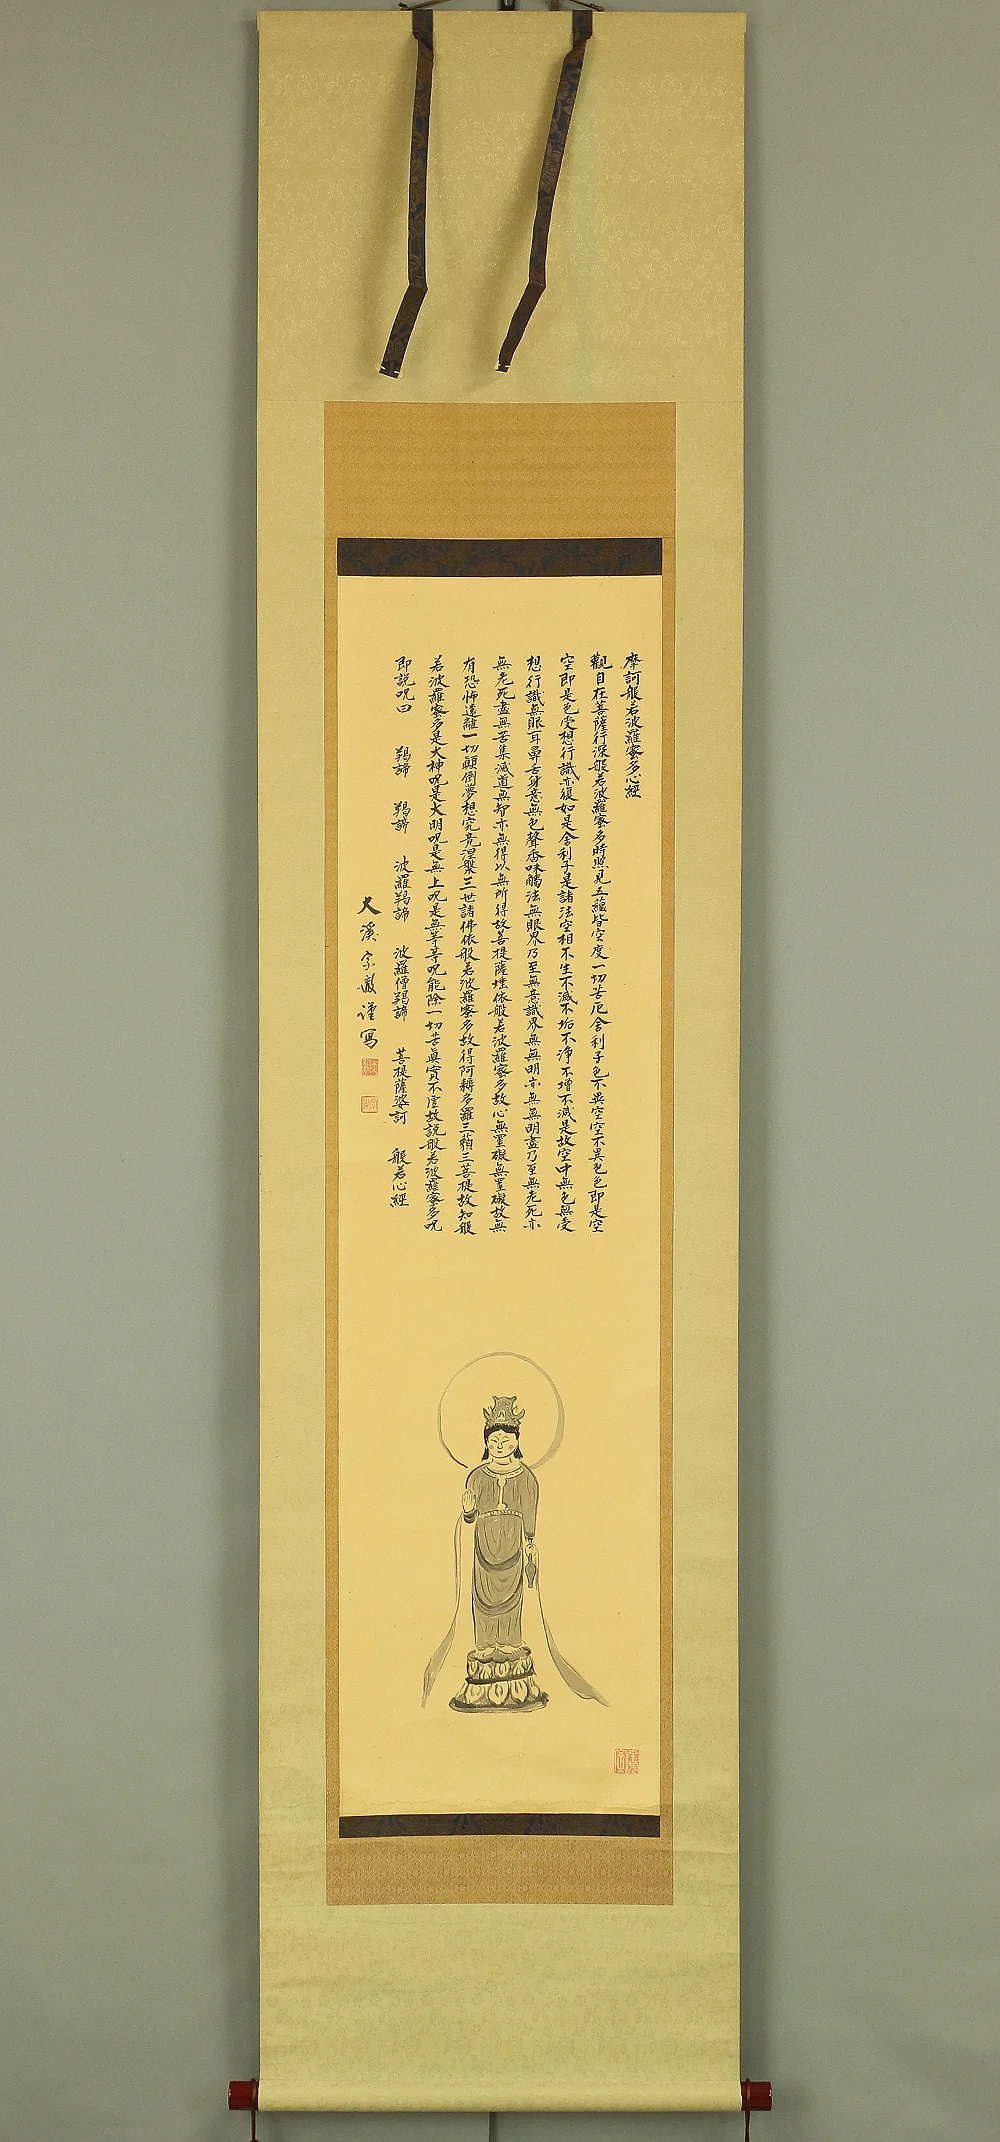 摩訶般若波羅蜜多心經
觀自在菩薩行深般若波羅蜜多時照見五蘊皆空度一切苦厄舍利子色不異空空不異色色即是空
空即是色受想行識亦復如是舍利子是諸法空相不生不滅不垢不浄不增不減是故空中無色無受
想行識無眼耳鼻舌身意無色聲香味觸法無眼界乃至無意識界無無明亦無無明盡乃至無老死亦
無老死盡無苦集滅道無智亦無得以無所得故菩提薩埵依般若波羅蜜多故心無罣礙無罣礙故無
有恐怖遠離一切顛倒夢想究竟涅槃三世諸佛依般若波羅蜜多故得阿耨多羅三藐三菩提故知般
若波羅蜜多是大神呪是大明呪是無上呪是無等等呪能除一切苦真實不虛故説般若波羅蜜多呪
即説呪曰 羯諦 羯諦 波羅羯諦 波羅僧羯諦 菩提薩婆訶 般若心經
大溪宗 謹寫